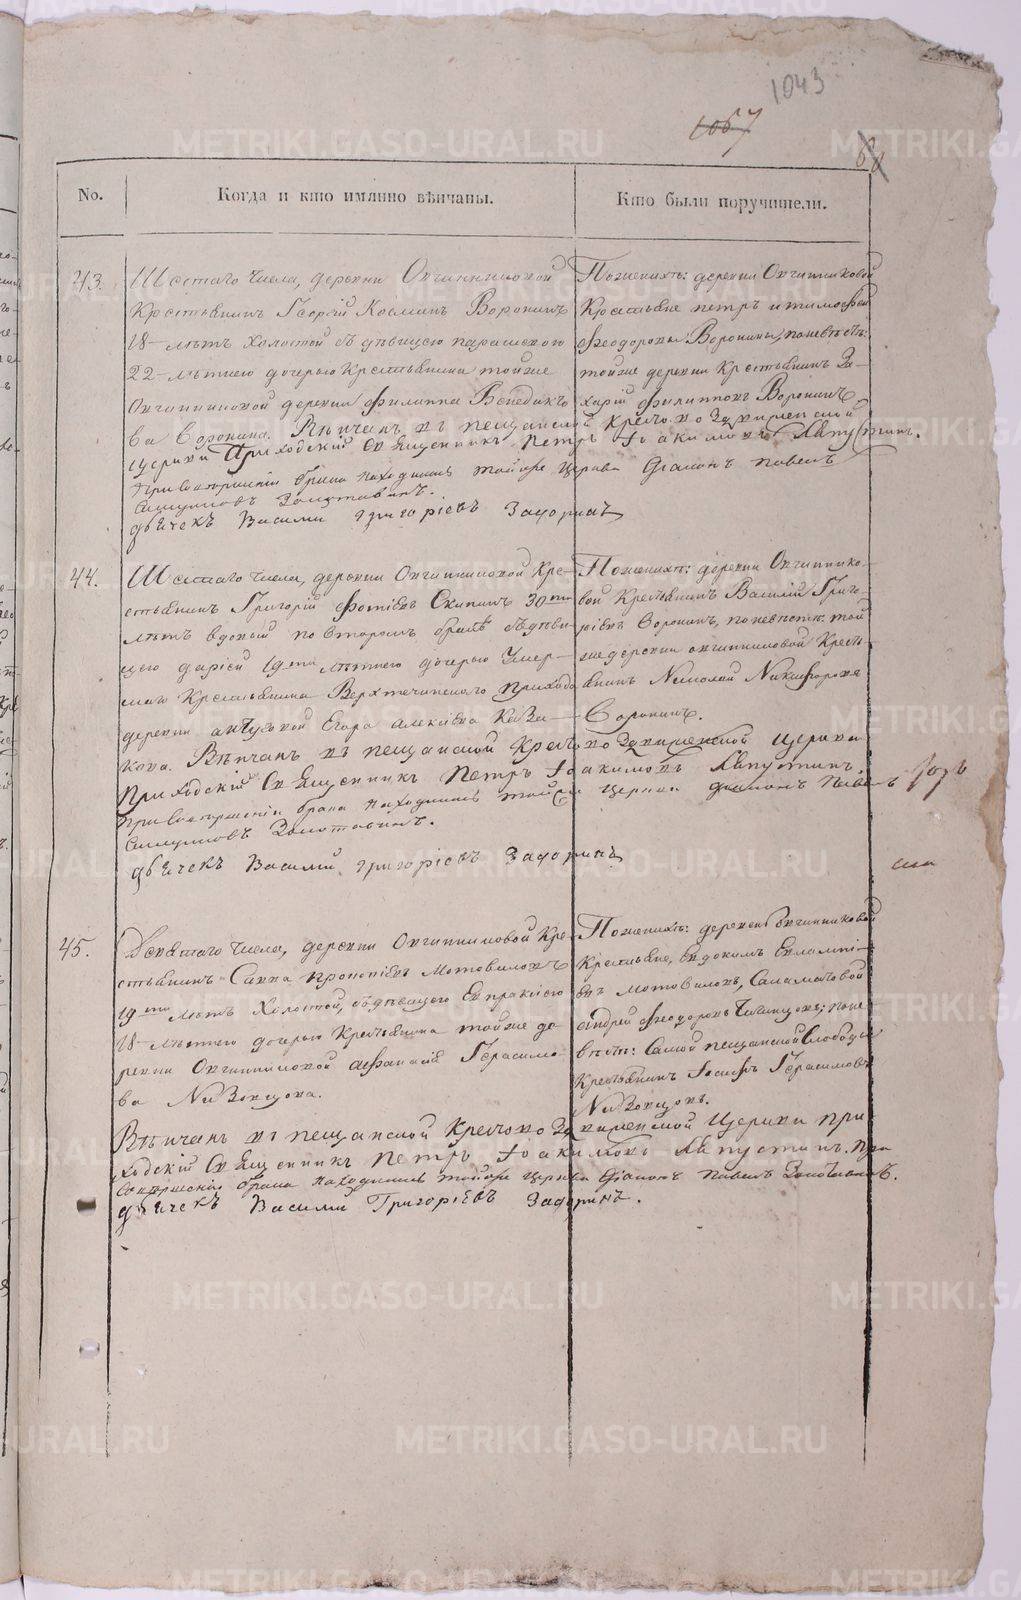 1043
1057
68
No.
Когда и кто имянно вѣнчаны.
Кто были поручители.
43.
Шестаго числа, деревни Овчинниковой
Крестьянинъ Георгій Косминъ Воронинъ
18 лѣтъ холостой съ дѣвицею парасковою
22-лѣтнею дочерью Крестьянина тойже
Овчинниковой деревни Филиппа Венедикто
ва Воронина. Вѣнчалъ въ пещанской Крестовоздвиженской
Церкви Приходскій Священникъ Петръ Іоакимовъ Лапустинъ.
При совершеніи брака находились тойже Церкви Діаконъ павелъ
Симоновъ Золотавинъ.
дьячекъ Василий григоріевъ Задоринъ
Пожених: деревни Овчинниковой
Крестьяне петръ и тимофей
Феодоровы Воронины, поневѣстѣ:
тойже деревни Крестьянинъ За-
харій филипповъ Воронинъ
44.
Шестаго числа, деревни Овчинниковой Кре-
стьянинъ Григорій Фотіевъ Скипинъ 30ти
лѣтъ вдовый повторомъ бракѣ съ дѣви-
цею даріей 19ти лѣтнею дочерью Умер-
шаго Крестьянина Верхтечинского прихода
деревни Егора алексіева Каза-
кова. Вѣнчалъ въ пещанской Крестовоздвиженской Церкви
Приходскій Священникъ Петръ Іоакимовъ Лапустинъ
При совершеніи брака находились тойже Церкви діаконъ Павелъ
Симоновъ Золотавинъ.
дьячекъ Василий григоріевъ Задоринъ
Пожених: деревни Овчиннико-
вой Крестьянинъ Василій Григо-
ріевъ Воронинъ, поневѣстѣ: той
же деревни овчинниковой Кресть-
янинъ Николай Никифоровъ
Воронинъ.
45.
Девятаго числа, деревни Овчинниковой Кре-
стьянинъ Савва прокопіевъ Мотовиловъ
19ти лѣтъ холостой, съ дѣвицею Евпраксіею
18 лѣтнею дочерью Крестьянина тойже де
ревни Овчинниковой афанасія Герасимо-
ва Низовцова.
Вѣнчалъ въ пещанской Крестовоздвиженской Церкви при-
ходскій Священникъ Петръ Іоакимовъ Лапустинъ. При
Совершеніи брака находились тойже церкви Діаконъ Павелъ Золотавинъ.
дьячекъ Василий Григоріевъ Задоринъ.
Пожених: деревень Овчинниковой
Крестьяне, Евдокимъ Евлампі-
евъ Мотовиловъ, Саламатовой
андрей Феодоровъ поне
вѣстѣ: Самой пещанской Слободы
Крестьянинъ Іосифъ Герасимовъ
Низовцовъ.